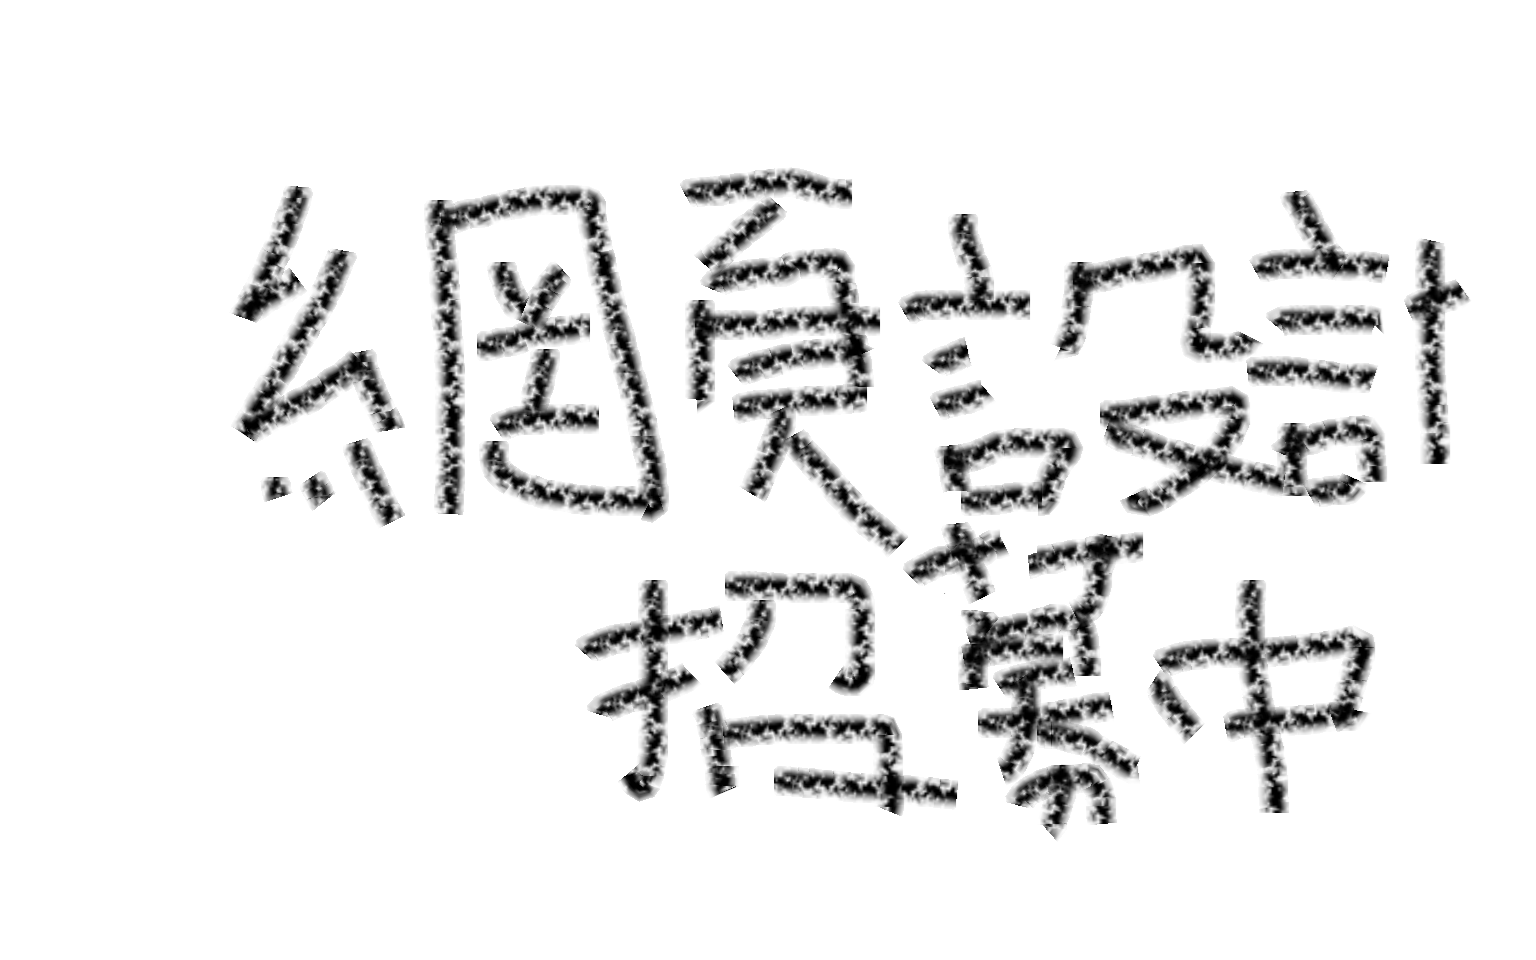 網頁設計
招募中